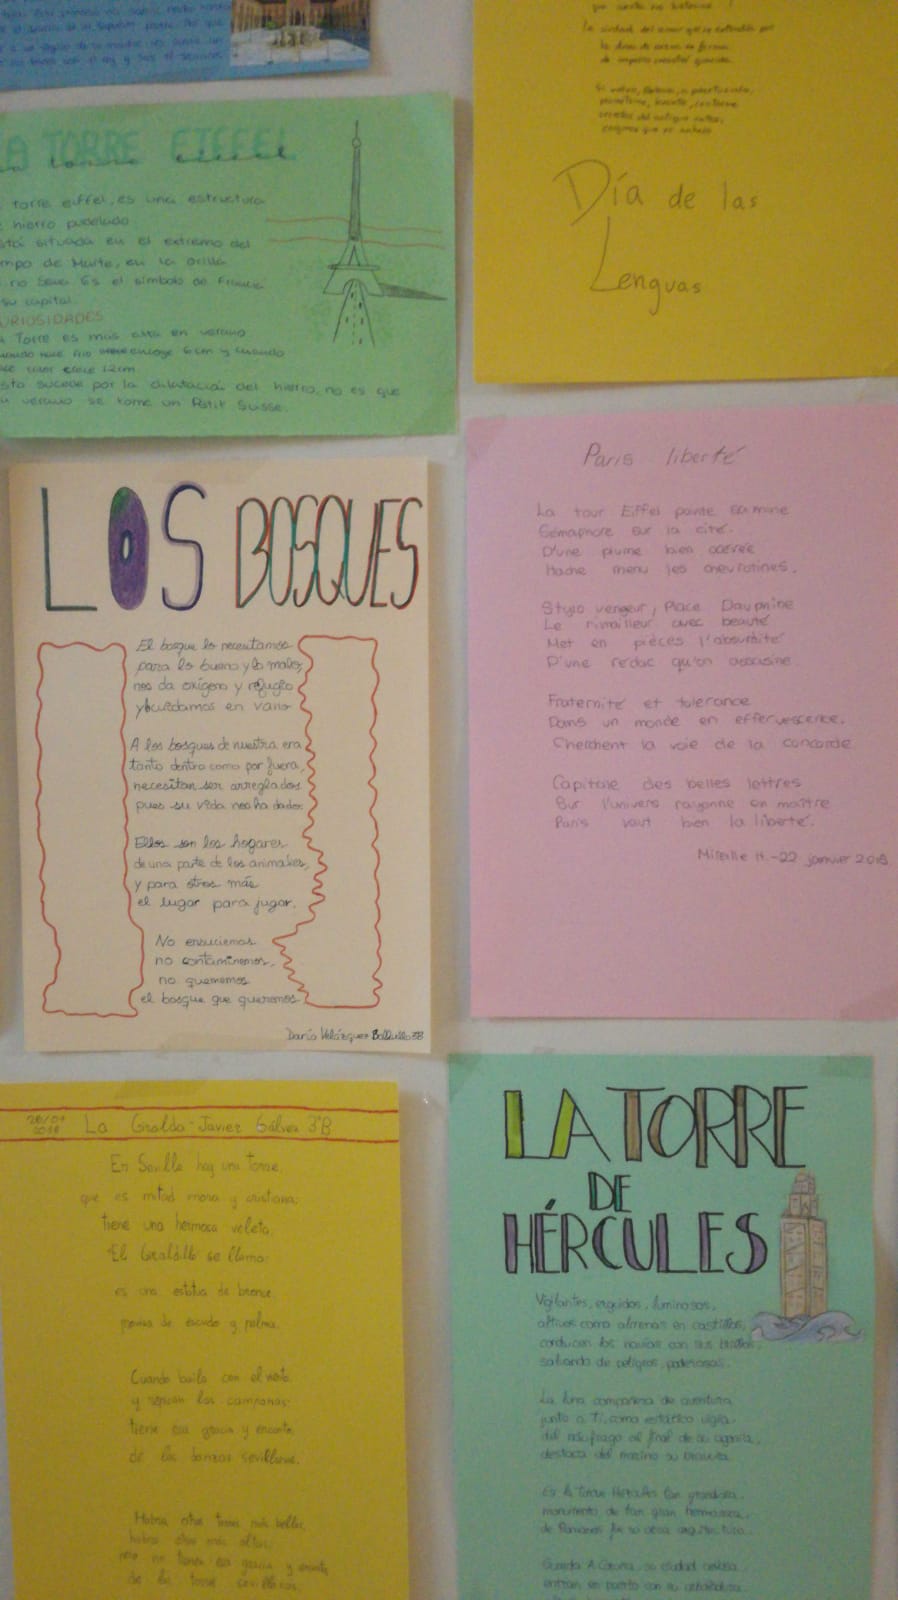 LA TORRE EIFFEL
la torre eiffel
torre eiffel, es una estructura
hierro pudelado
está situada en el extremo del
mpo de Marte, en la orilla
no Sena Es el símbolo de Francia
su capital.
CURIOSIDADES
Torre es más alta en verano
frio encoge 6 cm y cuando
calor crece 12cm.
sto sucede por la dilatación del hierro, no es que
verano se tome un Petit Suisse.
Día de las
Lenguas
LOS BOSQUES
El bosque lo necesitamos
para lo bueno y lo malo,
nos da oxígeno y refugio
y cuidamos en vano
A los bosques de nuestra era
tanto dentro como por fuera,
necesitan ser arreglados
pues su vida nos ha dado.
Ellos son los hogares
de una parte de los animales,
y para otros más
el lugar para jugar.
No ensuciemos
no contaminemos,
no quememos
el bosque que queremos
Darío Velázquez 3B
Paris liberté
La tour Eiffel pointe sa mine
Sémaphore sur la cité.
D'une plume bien acérée
Hache menu les chevrotines.
Stylo vengeur, Place Dauphine
Le rimailleur avec beauté
Met en pièces l'absurdité
D'une rédac qu'on assassine.
Fraternité et tolerance
Dans un monde en effervescence,
Cherchent la voie de la concorde
Capitale des belles lettres
Sur l'univers rayonne en maître
Paris vaut bien la liberté.
Mireille H. - 22 janvier 2018
La Giralda - Javier Gálvez 3ºB
En Sevilla hay una torre,
que es mitad mora y cristiana;
tiene una hermosa veleta.
El Giraldillo se llama:
es una estatua de bronce
provisa de escudo y palma.
Cuando baila con el viento
y repican las campanas:
tiene esa gracia y encanto
de las danzas sevillanas.
Habrá otras torres más bellas,
habrá otras más altas;
pero no tienen esa gracia y encanto
de la torre sevillana.
LA TORRE
DE
HÉRCULES
Vigilantes, erguidos, luminosos,
altivos como almenas en castillos,
conducen los navíos con sus brillos,
salvando de peligros, poderosos.
La luna compañera de aventura
junto a Ti, como estático vigía,
del náufrago al final de su agonía,
destaca del marino su bravura.
Es la Torre Hércules tan grandiosa
monumento de tan gran hermosura,
de Romanos fue su obra arquitectura.
Guarda A Coruña, su ciudad
entran en puerto con su